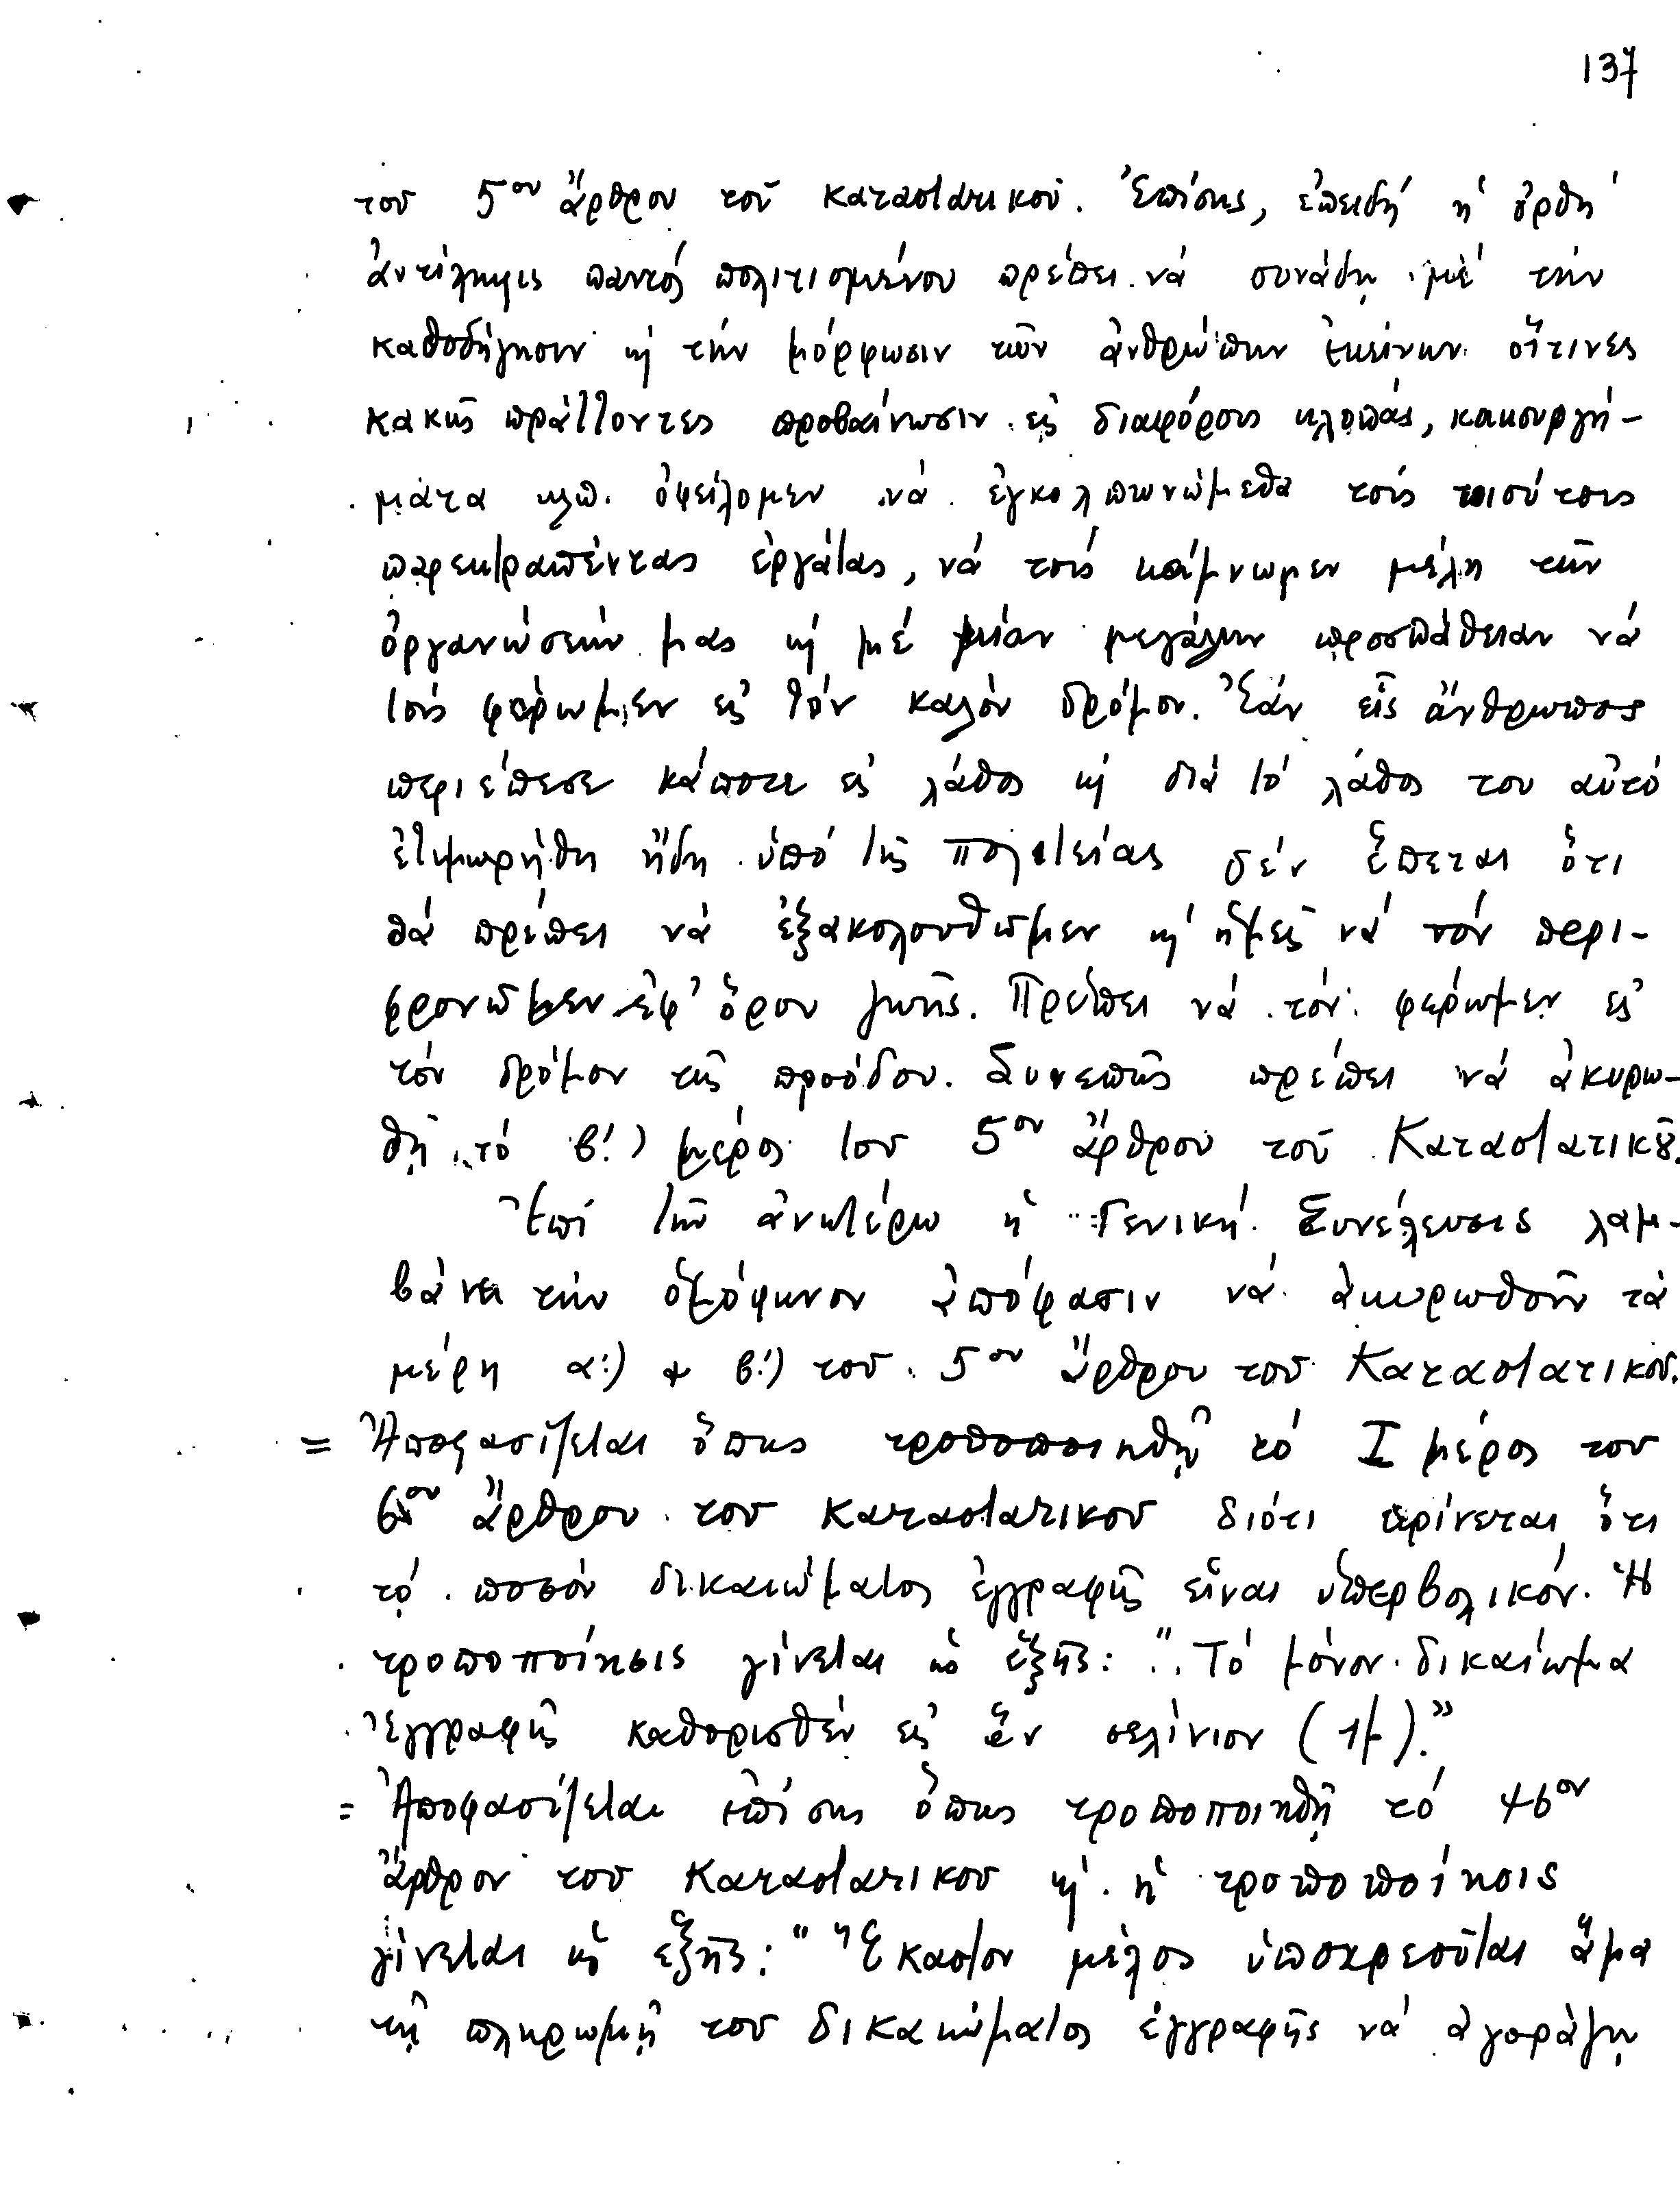 137
του 5ου ἄρθρου τοῦ καταστατικοῦ. Ἐπίσης, ἐπειδή ἡ ὀρθή
ἀντίληψις παντός πολιτισμένου πρέπει νά συνάδῃ μέ τήν
καθοδήγησιν κ' τήν μόρφωσιν τῶν ἀνθρώπων ἐκείνων οἵτινες
κακῶς πράττοντες προβαίνωσιν εἰς διαφόρους κλοπάς, κακουργή-
ματα κλπ. ὀφείλομεν νά ἐγκολπωνώμεθα τούς τοιούτους
παρεκτραπέντας ἐργάτας, νά τούς κάμνωμεν μέλη τῶν
ὀργανώσεών μας κ' μέ μίαν μεγάλην προσπάθειαν νά
τούς φέρωμεν εἰς τόν καλόν δρόμον. Ἐάν εἷς ἄνθρωπος
περιέπεσε κάποτε εἰς λάθος κ' διά τό λάθος του αὐτό
ἐτιμωρήθη ἤδη ὑπό τῆς πολιτείας δέν ἕπεται ὅτι
θά πρέπει νά ἐξακολουθῶμεν κ' ἡμεῖς νά τόν περι-
φρονῶμεν ἐφ' ὅρου ζωῆς. Πρέπει νά τόν φέρωμεν εἰς
τόν δρόμον τῆς προόδου. Συνεπῶς πρέπει νά ἀκυρω-
θῇ τό β!) μέρος του 5ου ἄρθρου τοῦ Καταστατικοῦ.
Ἐπί τῶν ἀνωτέρω ἡ Γενική Συνέλευσις λαμ-
βάνει τήν ὁμόφωνον ἀπόφασιν νά ἀκυρωθοῦν τά
μέρη α!) & β!) του 5ου ἄρθρου του Καταστατικοῦ.
= Ἀποφασίζεται ὅπως τροποποιηθῇ τό I μέρος του
6ου ἄρθρου του Καταστατικου διότι κρίνεται ὅτι
τό ποσόν δικαιώματος ἐγγραφῆς εἶναι ὑπερβολικόν. Ἡ
τροποποίησις γίνεται ὡς ἑξῆς: "Τό μόνον δικαίωμα
ἐγγραφῆς καθορισθέν εἰς ἕν σελίνιον (1/-)."
= Ἀποφασίζεται ἐπίσης ὅπως τροποποιηθῇ τό 46ον
ἄρθρον του Καταστατικου κ' ἡ τροποποίησις
γίνεται ὡς ἑξῆς: "Ἕκαστον μέλος ὑποχρεοῦται ἅμα
τῇ πληρωμῇ του δικαιώματος ἐγγραφῆς νά ἀγοράζῃ